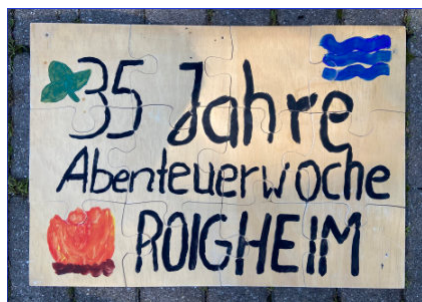 35 Jahre
Abenteuerwoche
ROIGHEIM